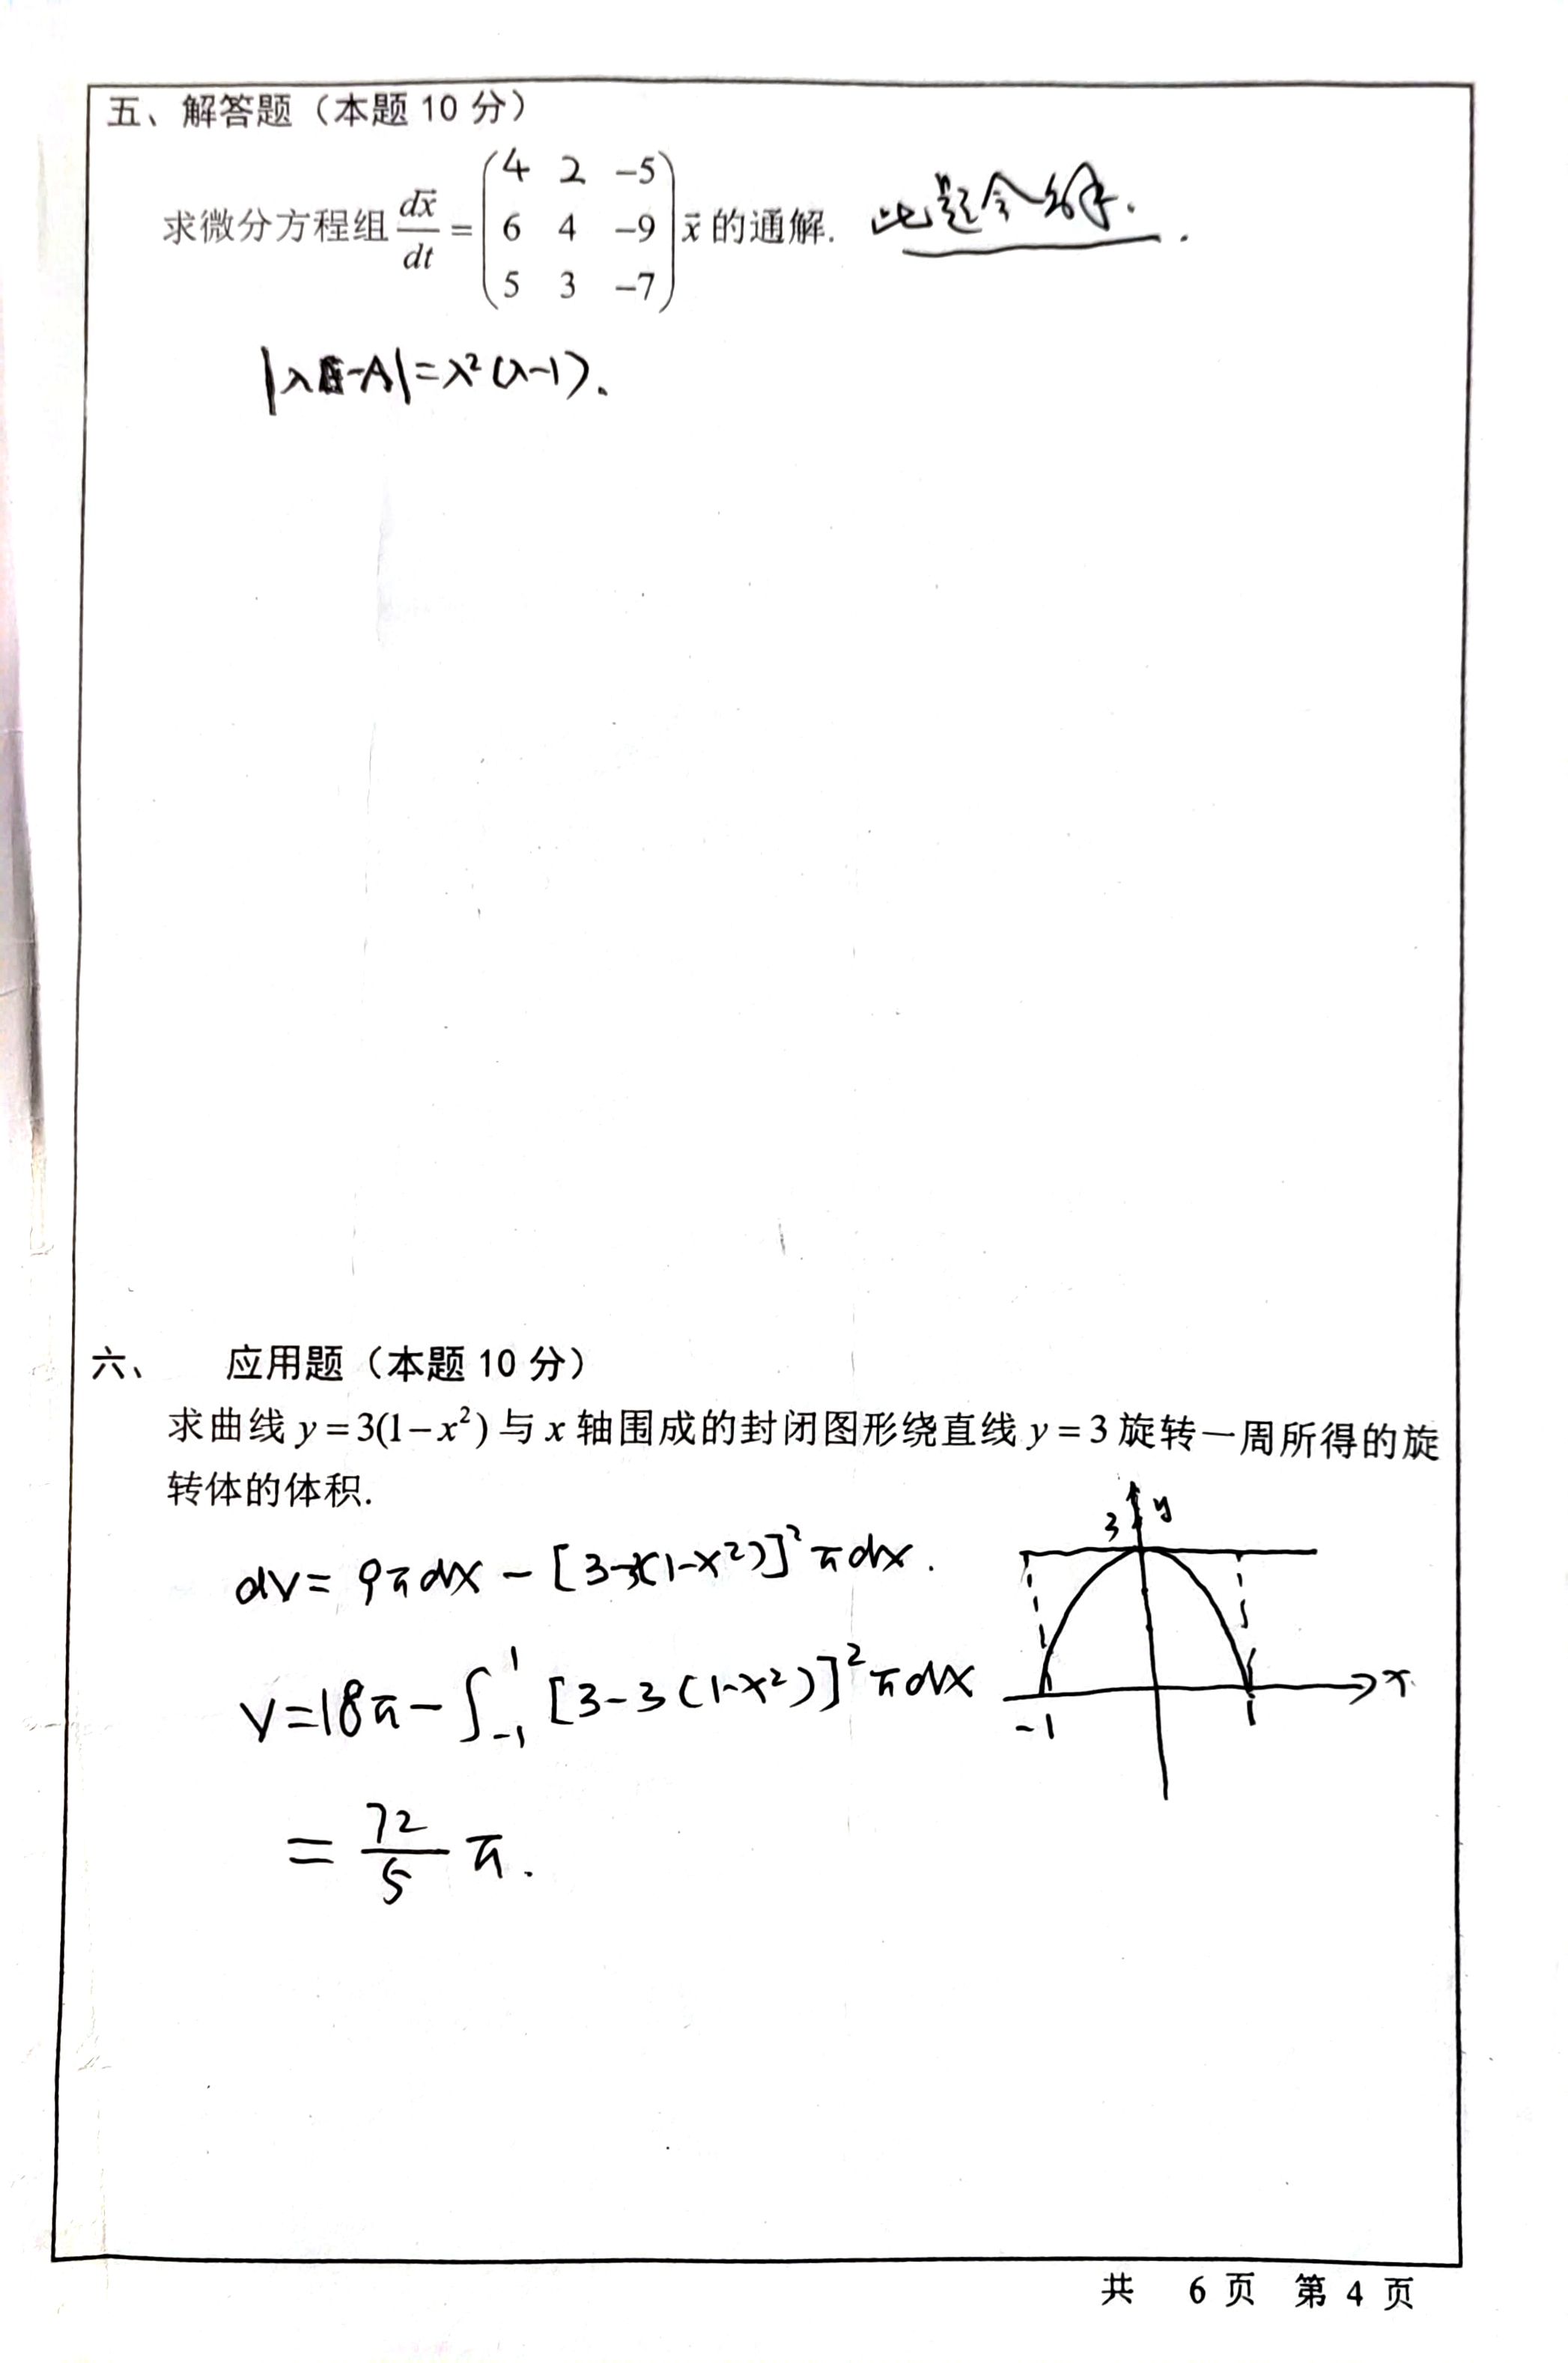 五、解答题（本题 10 分）
求微分方程组 $\frac{d\vec{x}}{dt} = \begin{pmatrix} 4 & 2 & -5 \\ 6 & 4 & -9 \\ 5 & 3 & -7 \end{pmatrix} \vec{x}$ 的通解. 此题会解.
|λE-A|=λ²(λ-1).
六、 应用题（本题 10 分）
求曲线 y=3(1-x²) 与 x 轴围成的封闭图形绕直线 y=3 旋转一周所得的旋
转体的体积.
3 y
dV= 9πdx - [3-3(1-x²)]²πdx.
V=18π-∫₋₁¹ [3-3(1-x²)]²πdx
x
-1 1
= $\frac{72}{5}$ π.
共 6 页 第 4 页